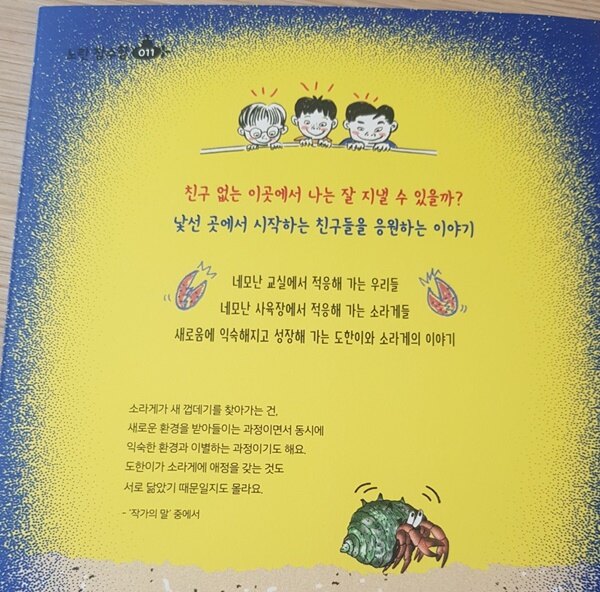 노란 잠수함 011
친구 없는 이곳에서 나는 잘 지낼 수 있을까?
낯선 곳에서 시작하는 친구들을 응원하는 이야기
네모난 교실에서 적응해 가는 우리들
네모난 사육장에서 적응해 가는 소라게들
새로움에 익숙해지고 성장해 가는 도한이와 소라게의 이야기
소라게가 새 껍데기를 찾아가는 건,
새로운 환경을 받아들이는 과정이면서 동시에
익숙한 환경과 이별하는 과정이기도 해요.
도한이가 소라게에 애정을 갖는 것도
서로 닮았기 때문일지도 몰라요.
- '작가의 말' 중에서